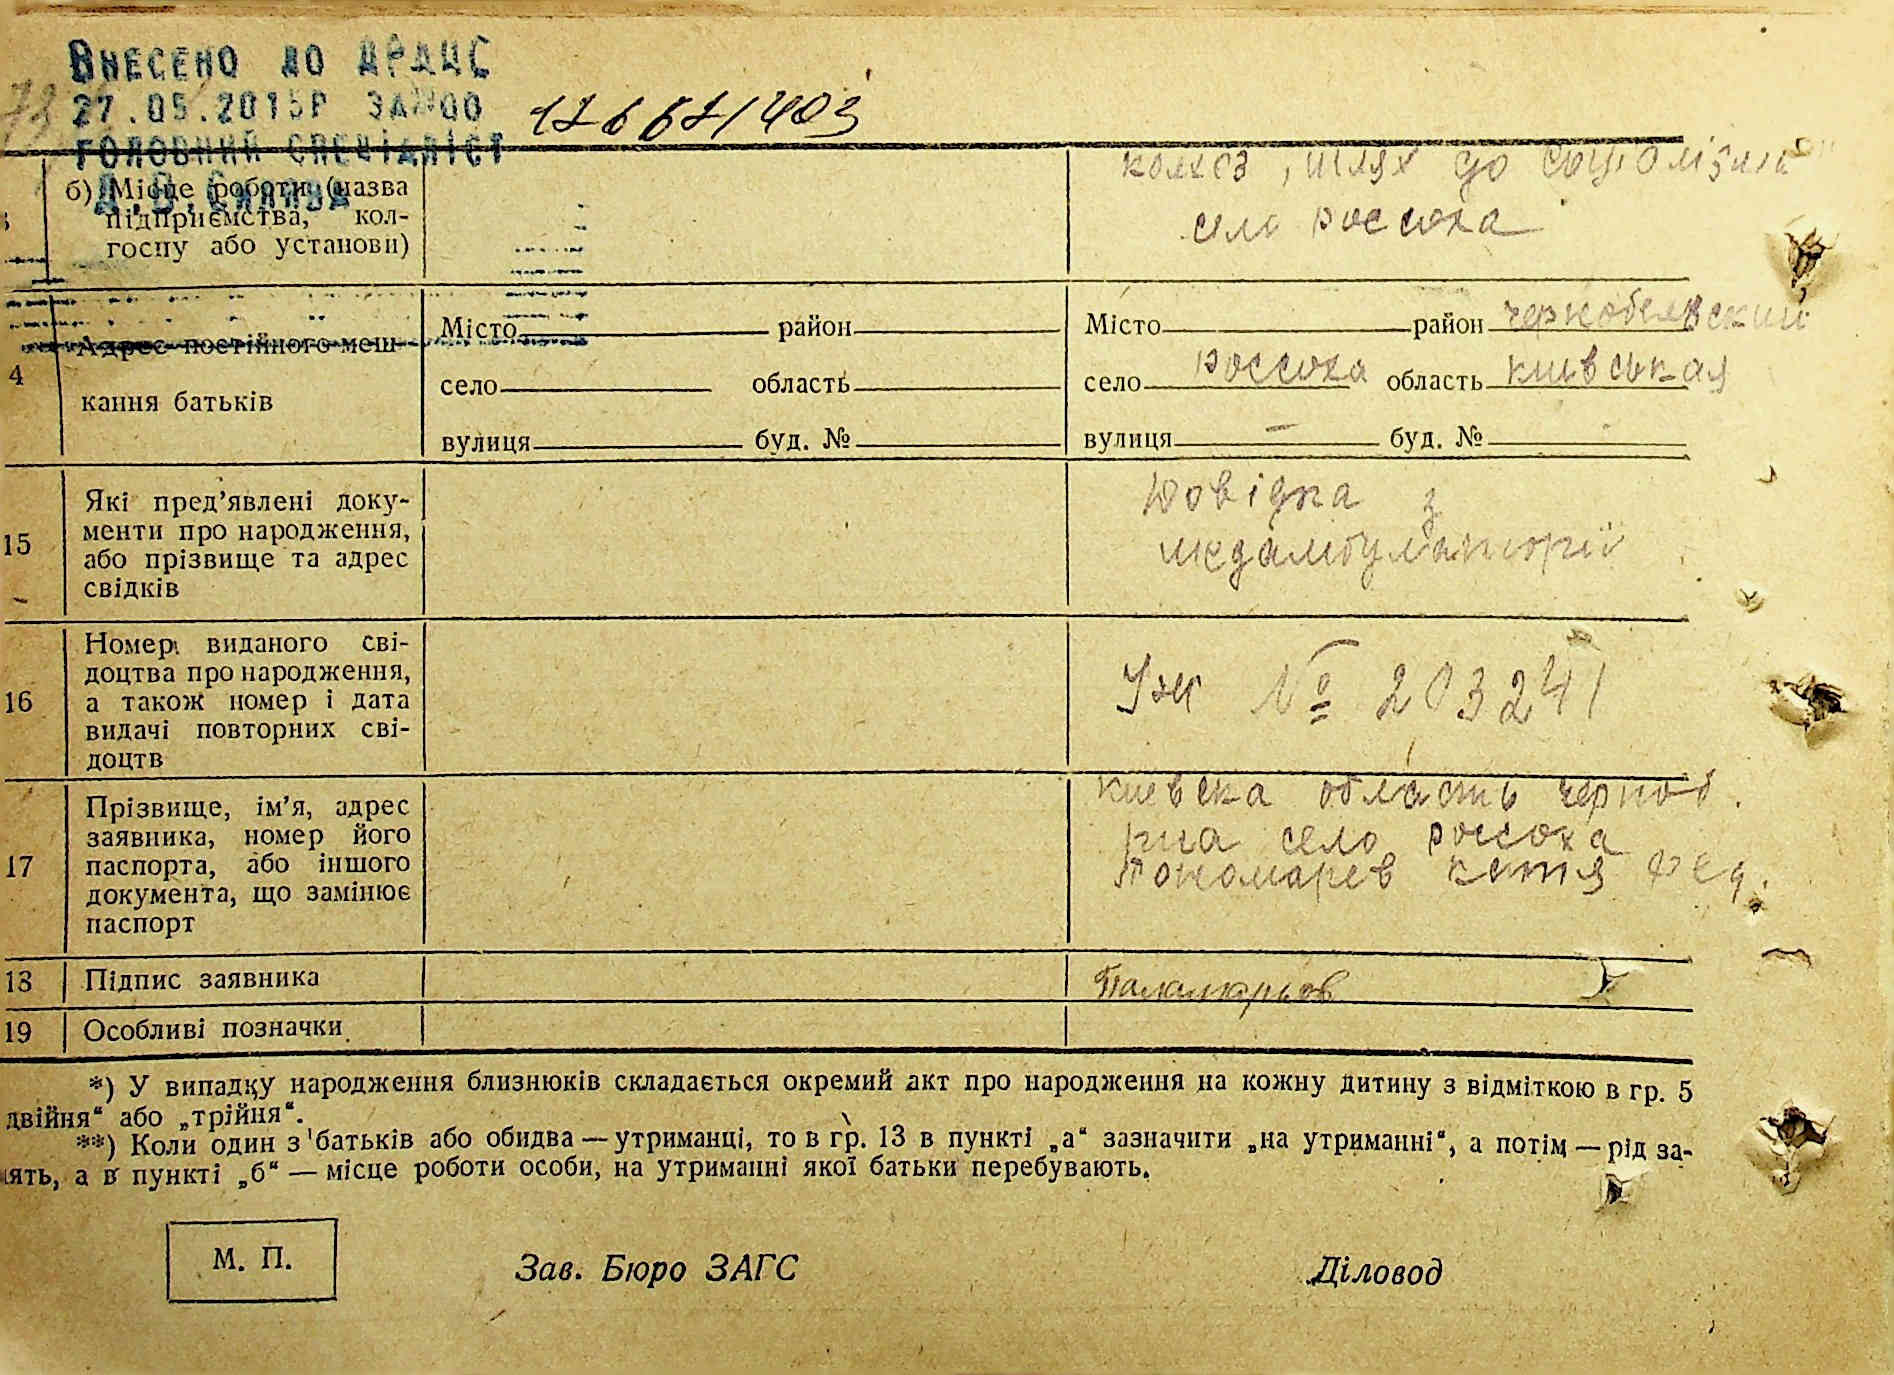 Внесено до ДРАЦС
27.05.2015р за №00 176671403
головний спеціаліст
б) Місце роботи (назва
підприємства, кол-
госпу або установи)
колхоз, шлях до соціолізма
село россоха
4
Адрес постійного меш-
кання батьків
Місто район
село область
вулиця буд. №
Місто район чернобелвский
село россоха область киевськая
вулиця — буд. №
15
Які пред’явлені доку-
менти про народження,
або прізвище та адрес
свідків
Довідка з
медамбулаторії
16
Номер виданого сві-
доцтва про народження,
а також номер і дата
видачі повторних сві-
доцтв
№ 203241
17
Прізвище, ім’я, адрес
заявника, номер його
паспорта, або іншого
документа, що замінює
паспорт
киевска область черноб.
рна село россоха
Пономарев Фед.
18 Підпис заявника
19 Особливі позначки
*) У випадку народження близнюків складається окремий акт про народження на кожну дитину з відміткою в гр. 5
двійня“ або „трійня“.
**) Коли один з батьків або обидва — утриманці, то в гр. 13 в пункті „а“ зазначити „на утриманні“, а потім — рід за-
нять, а в пункті „б“ — місце роботи особи, на утриманні якої батьки перебувають.
М. П.
Зав. Бюро ЗАГС
Діловод